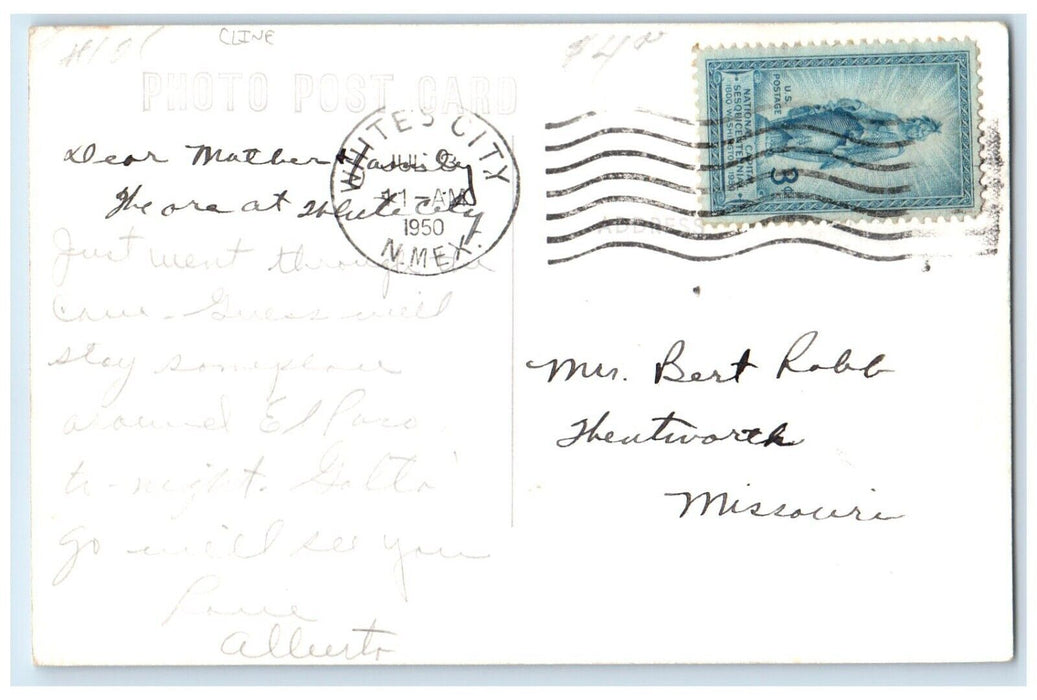 CLINE
PHOTO POST CARD
WHITE'S CITY
11 - AM
1950
N.MEX.
U.S. POSTAGE
NATIONAL CAPITAL
SESQUICENTENNIAL
1800 WASHINGTON 1950
3¢
ADDRESS
Dear Mother
We are at White City
Just went through the
Cave. Guess we'll
stay someplace
around El Paso
to-night. Gotta
go we'll see you
Love
Mrs. Bert Robb
Wentworth
Missouri